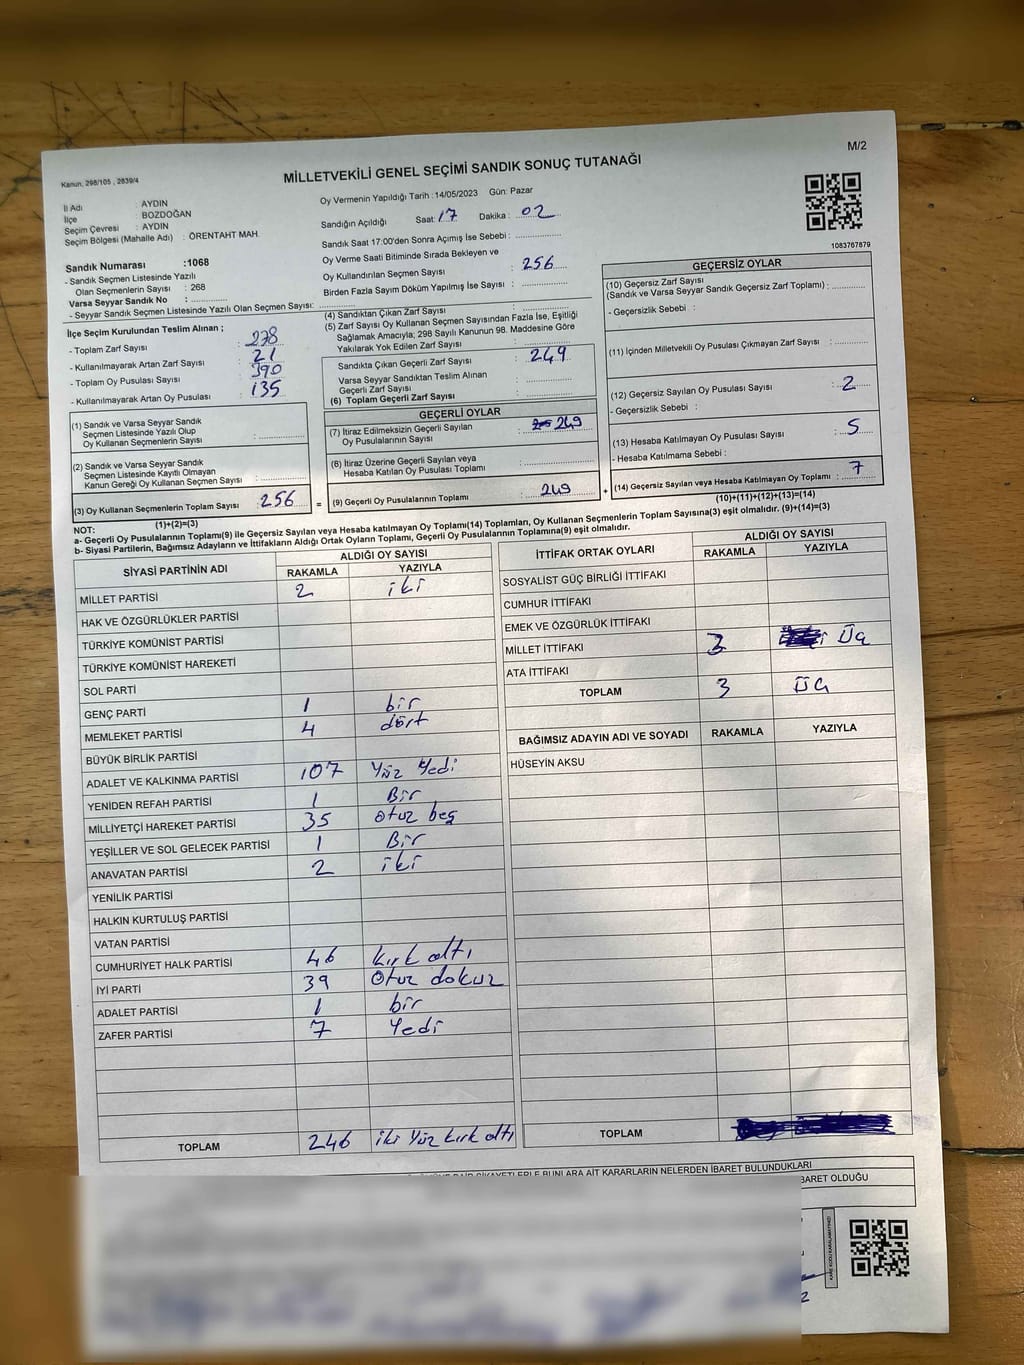 M/2
Kanun, 298/105 , 2839/4
MİLLETVEKİLİ GENEL SEÇİMİ SANDIK SONUÇ TUTANAĞI
İl Adı : AYDIN
İlçe : BOZDOĞAN
Seçim Çevresi : AYDIN
Seçim Bölgesi (Mahalle Adı) : ÖRENTAHT MAH.
Sandık Numarası :1068
- Sandık Seçmen Listesinde Yazılı
Olan Seçmenlerin Sayısı : 268
Varsa Seyyar Sandık No : ..............
- Seyyar Sandık Seçmen Listesinde Yazılı Olan Seçmen Sayısı: ..............
Oy Vermenin Yapıldığı Tarih :14/05/2023 Gün: Pazar
Sandığın Açıldığı Saat: 17 Dakika : 02
Sandık Saat 17:00'den Sonra Açımış İse Sebebi : ..............
Oy Verme Saati Bitiminde Sırada Bekleyen ve
Oy Kullandırılan Seçmen Sayısı : 256
Birden Fazla Sayım Döküm Yapılmış İse Sayısı : ..............
1083767879
İlçe Seçim Kurulundan Teslim Alınan ;
- Toplam Zarf Sayısı : 278
- Kullanılmayarak Artan Zarf Sayısı : 21
- Toplam Oy Pusulası Sayısı : 390
- Kullanılmayarak Artan Oy Pusulası : 135
(1) Sandık ve Varsa Seyyar Sandık
Seçmen Listesinde Yazılı Olup
Oy Kullanan Seçmenlerin Sayısı : ..............
(2) Sandık ve Varsa Seyyar Sandık
Seçmen Listesinde Kayıtlı Olmayan
Kanun Gereği Oy Kullanan Seçmen Sayısı : ..............
(3) Oy Kullanan Seçmenlerin Toplam Sayısı : 256 =
(4) Sandıktan Çıkan Zarf Sayısı : ..............
(5) Zarf Sayısı Oy Kullanan Seçmen Sayısından Fazla İse, Eşitliği
Sağlamak Amacıyla; 298 Sayılı Kanunun 98. Maddesine Göre
Yakılarak Yok Edilen Zarf Sayısı : ..............
Sandıkta Çıkan Geçerli Zarf Sayısı : 249
Varsa Seyyar Sandıktan Teslim Alınan
Geçerli Zarf Sayısı : ..............
(6) Toplam Geçerli Zarf Sayısı : ..............
GEÇERLİ OYLAR
(7) İtiraz Edilmeksizin Geçerli Sayılan
Oy Pusulalarının Sayısı : 249
(8) İtiraz Üzerine Geçerli Sayılan veya
Hesaba Katılan Oy Pusulası Toplamı : ..............
(9) Geçerli Oy Pusulalarının Toplamı : 249 +
GEÇERSİZ OYLAR
(10) Geçersiz Zarf Sayısı
(Sandık ve Varsa Seyyar Sandık Geçersiz Zarf Toplamı) : ..............
- Geçersizlik Sebebi :
(11) İçinden Milletvekili Oy Pusulası Çıkmayan Zarf Sayısı : ..............
(12) Geçersiz Sayılan Oy Pusulası Sayısı : 2
- Geçersizlik Sebebi :
(13) Hesaba Katılmayan Oy Pusulası Sayısı : 5
- Hesaba Katılmama Sebebi :
(14) Geçersiz Sayılan veya Hesaba Katılmayan Oy Toplamı : 7
(10)+(11)+(12)+(13)=(14)
NOT: (1)+(2)=(3)
a- Geçerli Oy Pusulalarının Toplamı(9) ile Geçersiz Sayılan veya Hesaba katılmayan Oy Toplamı(14) Toplamları, Oy Kullanan Seçmenlerin Toplam Sayısına(3) eşit olmalıdır. (9)+(14)=(3)
b- Siyasi Partilerin, Bağımsız Adayların ve İttifakların Aldığı Ortak Oyların Toplamı, Geçerli Oy Pusulalarının Toplamına(9) eşit olmalıdır.
SİYASİ PARTİNİN ADI ALDIĞI OY SAYISI
RAKAMLA YAZIYLA
MİLLET PARTİSİ 2 iki
HAK VE ÖZGÜRLÜKLER PARTİSİ
TÜRKİYE KOMÜNİST PARTİSİ
TÜRKİYE KOMÜNİST HAREKETİ
SOL PARTİ
GENÇ PARTİ 1 bir
MEMLEKET PARTİSİ 4 dört
BÜYÜK BİRLİK PARTİSİ
ADALET VE KALKINMA PARTİSİ 107 Yüz Yedi
YENİDEN REFAH PARTİSİ 1 Bir
MİLLİYETÇİ HAREKET PARTİSİ 35 otuz beş
YEŞİLLER VE SOL GELECEK PARTİSİ 1 Bir
ANAVATAN PARTİSİ 2 iki
YENİLİK PARTİSİ
HALKIN KURTULUŞ PARTİSİ
VATAN PARTİSİ
CUMHURİYET HALK PARTİSİ 46 kırk altı
İYİ PARTİ 39 Otuz dokuz
ADALET PARTİSİ 1 bir
ZAFER PARTİSİ 7 Yedi
TOPLAM 246 iki Yüz kırk altı
İTTİFAK ORTAK OYLARI ALDIĞI OY SAYISI
RAKAMLA YAZIYLA
SOSYALİST GÜÇ BİRLİĞİ İTTİFAKI
CUMHUR İTTİFAKI
EMEK VE ÖZGÜRLÜK İTTİFAKI
MİLLET İTTİFAKI 3 Üç
ATA İTTİFAKI
TOPLAM 3 Üç
BAĞIMSIZ ADAYIN ADI VE SOYADI RAKAMLA YAZIYLA
HÜSEYİN AKSU
TOPLAM
ŞİKAYETLERLE BUNLARA AİT KARARLARIN NELERDEN İBARET BULUNDUKLARI
BARET OLDUĞU